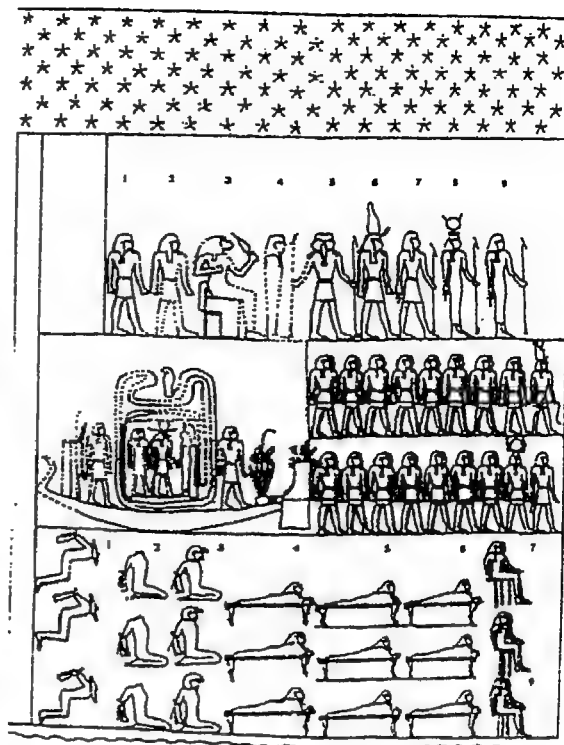 1 2 3 4 5 6 7 8 9
1 2 3 4 5 6 7
9